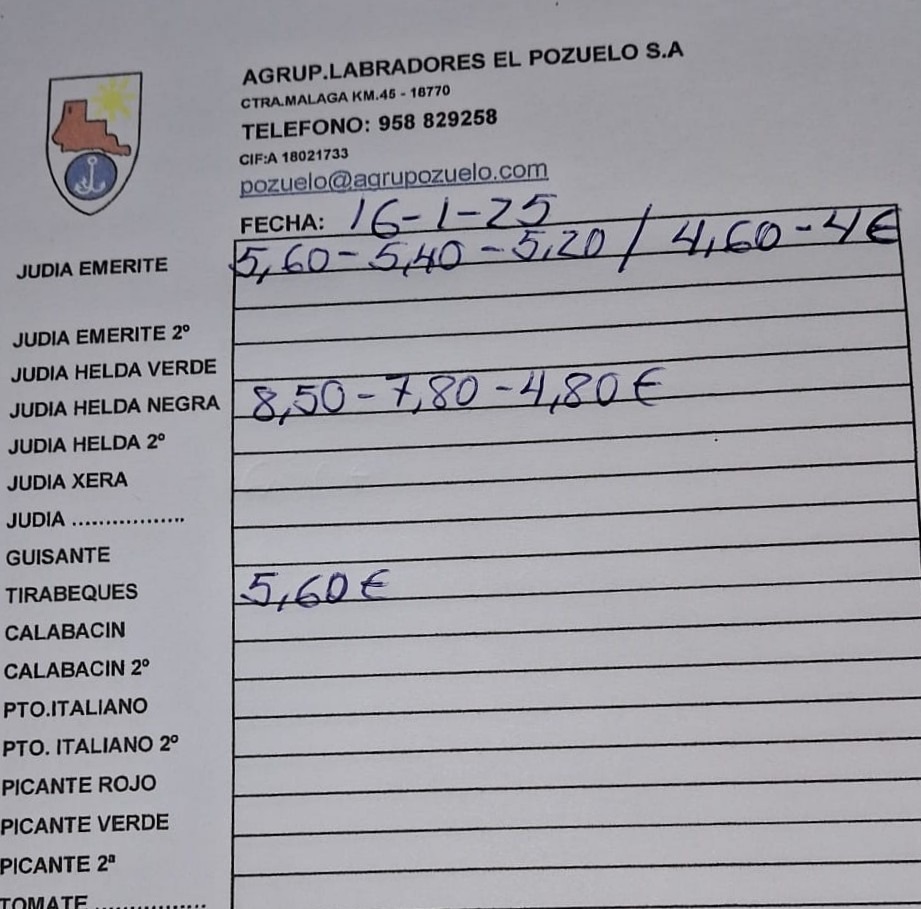 AGRUP.LABRADORES EL POZUELO S.A
CTRA.MALAGA KM.45 - 18770
TELEFONO: 958 829258
CIF:A 18021733
pozuelo@agrupozuelo.com
FECHA: 16-1-25
JUDIA EMERITE 5,60-5,40-5,20 / 4,60-4€
JUDIA EMERITE 2º
JUDIA HELDA VERDE
JUDIA HELDA NEGRA 8,50-7,80-4,80€
JUDIA HELDA 2º
JUDIA XERA
JUDIA .................
GUISANTE
TIRABEQUES 5,60€
CALABACIN
CALABACIN 2º
PTO.ITALIANO
PTO. ITALIANO 2º
PICANTE ROJO
PICANTE VERDE
PICANTE 2ª
TOMATE ................